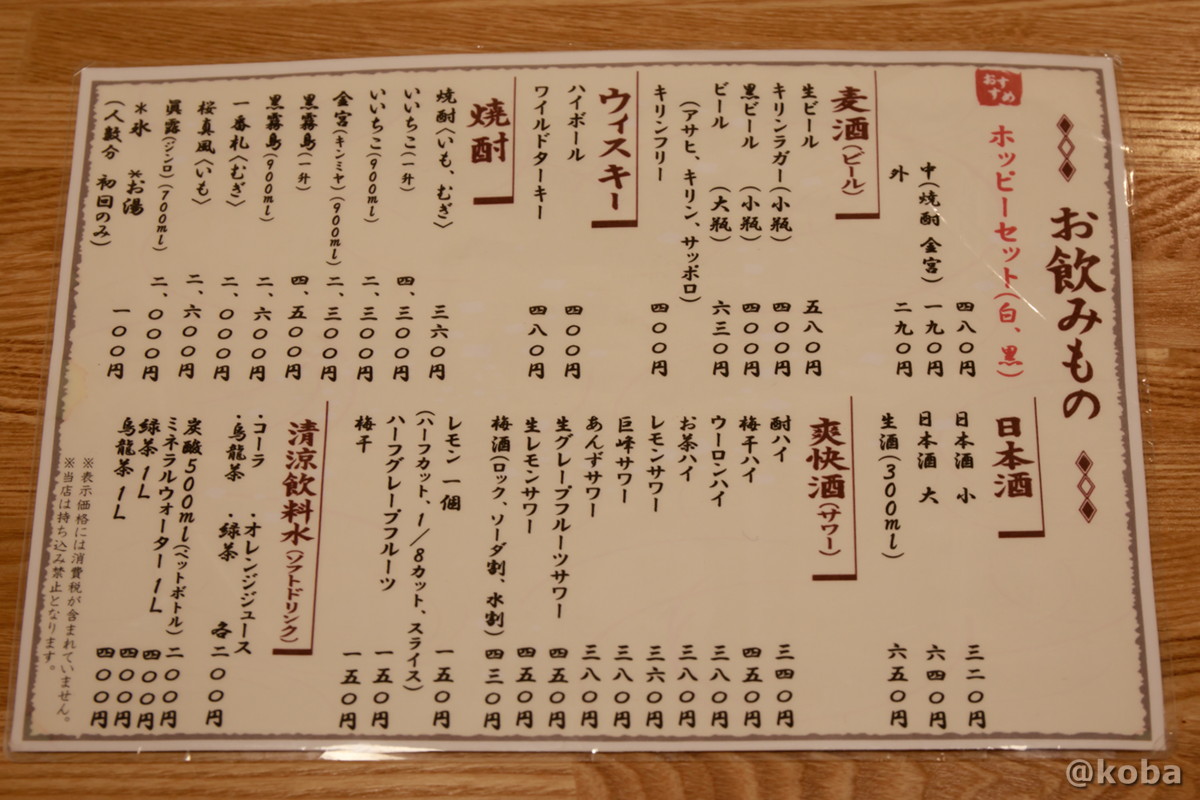 お飲みもの
おすすめ
ホッピーセット(白、黒)
四八〇円
中(焼酎 金宮) 一九〇円
外 二九〇円
麦酒(ビール)
生ビール 五八〇円
キリンラガー(小瓶) 四〇〇円
黒ビール (小瓶) 四〇〇円
ビール (大瓶) 六三〇円
(アサヒ、キリン、サッポロ)
キリンフリー 四〇〇円
ウィスキー
ハイボール 四〇〇円
ワイルドターキー 四八〇円
焼酎
焼酎〈いも、むぎ〉 三六〇円
いいちこ(一升) 四、三〇〇円
いいちこ(900ml) 二、三〇〇円
金宮(キンミヤ)(900ml) 二、三〇〇円
黒霧島(一升) 四、五〇〇円
黒霧島(900ml) 二、六〇〇円
一番札〈むぎ〉 二、〇〇〇円
桜真風〈いも〉 二、六〇〇円
眞露(ジンロ)(700ml) 二、〇〇〇円
*氷 *お湯 一〇〇円
(人数分 初回のみ)
日本酒
日本酒 小 三二〇円
日本酒 大 六四〇円
生酒(300ml) 六五〇円
爽快酒(サワー)
酎ハイ 三四〇円
梅干ハイ 四五〇円
ウーロンハイ 三八〇円
お茶ハイ 三八〇円
レモンサワー 三六〇円
巨峰サワー 三八〇円
あんずサワー 三八〇円
生グレープフルーツサワー 四五〇円
生レモンサワー 四五〇円
梅酒(ロック、ソーダ割、水割) 四三〇円
レモン 一個 一五〇円
(ハーフカット、1/8カット、スライス)
ハーフグレープフルーツ 一五〇円
梅干 一五〇円
清涼飲料水(ソフトドリンク)
・コーラ ・オレンジジュース
・烏龍茶 ・緑茶 各二〇〇円
炭酸500ml(ペットボトル) 二〇〇円
ミネラルウォーター1L 四〇〇円
緑茶1L 四〇〇円
烏龍茶1L 四〇〇円
※表示価格には消費税が含まれていません。
※当店は持ち込み禁止となります。
@koba